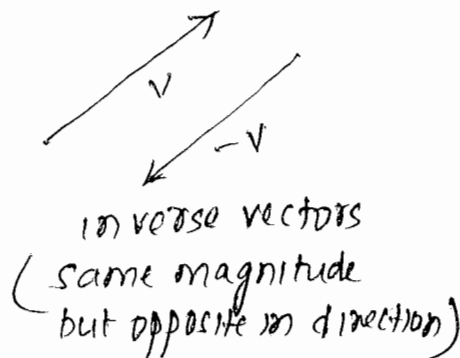 V
-V
inverse vectors
(same magnitude
but opposite in direction)